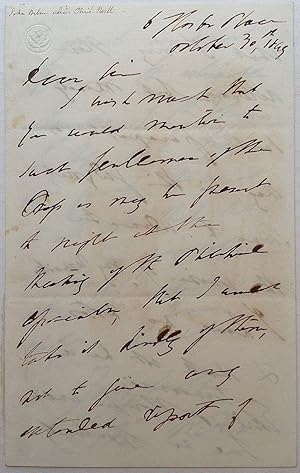 John Wilson alias Christ. North
6
Place
October 30th 1849
Dear Sir
I wish much that
you would mention to
such gentlemen of the
Press as may be present
to night at the
Meeting of the
Association, that I would
take it kindly of them,
not to give any
extended report of